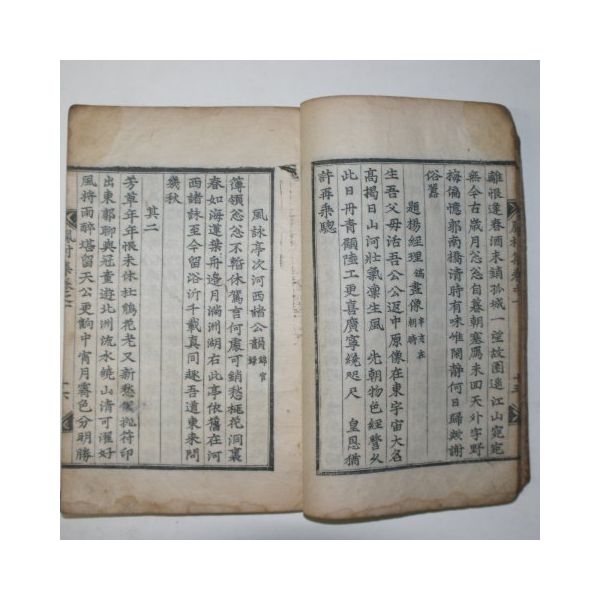 離恨逢春酒未銷孤城一望故園遥江山宛宛
無今古歲月忩忩自暮朝塞鴈來四天外字野
梅偏憶郭南橋清時有味唯閑靜何日歸歟謝
俗囂
題楊經理鎬畫像
生吾父母活吾公公返中原像在東宇宙大名
高揭日山河壯氣凜生風先朝物色經營久
此日丹青顧陸工更喜廣寧繞咫尺皇恩猶
許再乘驄
風詠亭次河西諸公韻
簿領忩忩不暫休駕言何處可銷愁桃花洞裏
春如海蓮葉舟邊月滿洲湖右此亭依舊在河
西諸詠至今留浴沂千載真同趣吾道東來問
幾秋
其二
芳草年年恨未休杜鵑花老又新愁抛符印
出東郭聊與冠童遊北洲流水繞山清可濯好
風將雨醉堪留天公更餉中宵月霽色分明勝